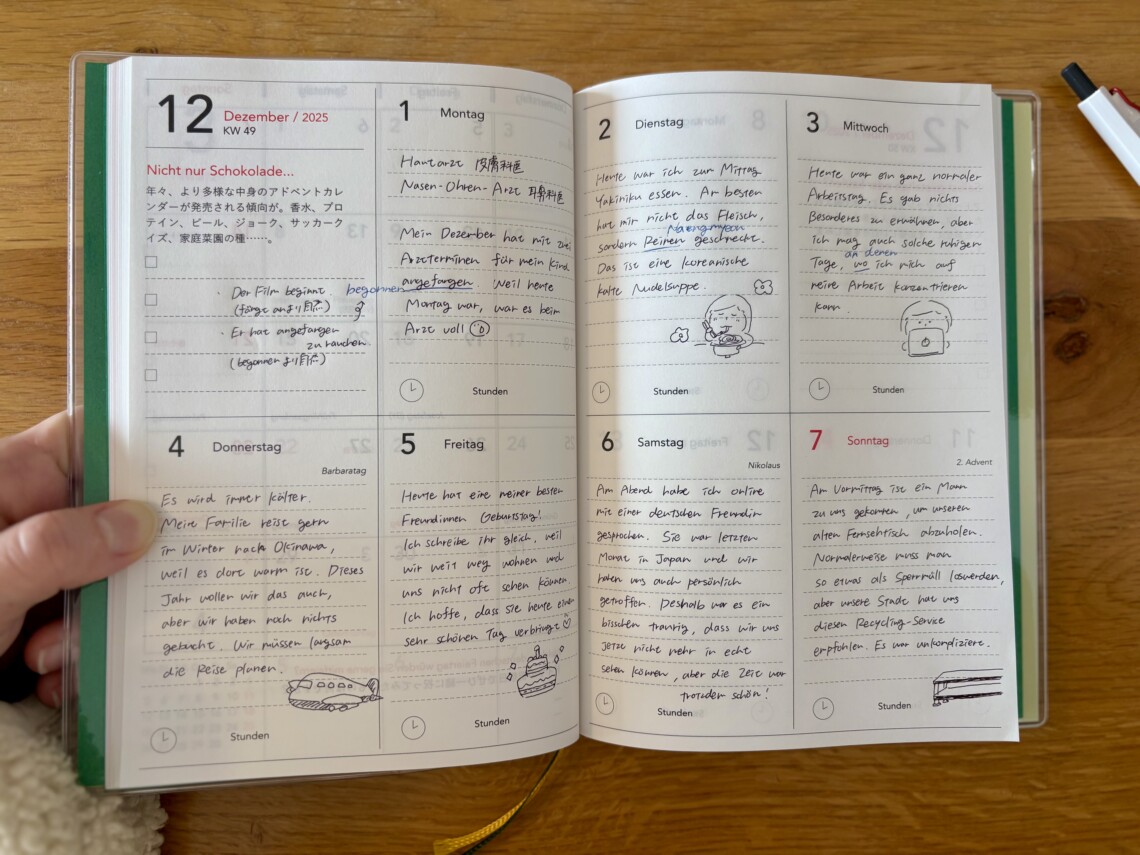 12
Dezember / 2025
KW 49
Nicht nur Schokolade...
年々、より多様な中身のアドベントカレ
ンダーが発売される傾向が。香水、プロ
テイン、ビール、ジョーク、サッカーク
イズ、家庭菜園の種……。
・ Der Film beginnt.
(fängt anより自然)
・ Er hat angefangen
zu rauchen.
(begonnenより自然)
1 Montag
Hautarzt 皮膚科医
Nasen-Ohren-Arzt 耳鼻科医
Mein Dezember hat mit zwei
Arztterminen für mein Kind
begonnen
angefangen. Weil heute
Montag war, war es beim
Arzt voll
Stunden
2 Dienstag
Heute war ich zum Mittag
Yakiniku essen. Am besten
hat mir nicht das Fleisch,
Naengmyeon
sondern Reimen geschmeckt.
Das ist eine koreanische
kalte Nudelsuppe.
Stunden
3 Mittwoch
Heute war ein ganz normaler
Arbeitstag. Es gab nichts
Besonderes zu erwähnen, aber
ich mag auch solche ruhigen
an denen
Tage, wo ich mich auf
meine Arbeit konzentrieren
kann.
Stunden
4 Donnerstag
Barbaratag
Es wird immer kälter.
Meine Familie reist gern
im Winter nach Okinawa,
weil es dort warm ist. Dieses
Jahr wollen wir das auch,
aber wir haben noch nichts
gebucht. Wir müssen langsam
die Reise planen.
Stunden
5 Freitag
Heute hat eine meiner besten
Freundinnen Geburtstag!
Ich schreibe ihr gleich, weil
wir weit weg wohnen und
uns nicht oft sehen können.
Ich hoffe, dass sie heute einen
sehr schönen Tag verbringt
Stunden
6 Samstag
Nikolaus
Am Abend habe ich online
mit einer deutschen Freundin
gesprochen. Sie war letzten
Monat in Japan und wir
haben uns auch persönlich
getroffen. Deshalb war es ein
bisschen traurig, dass wir uns
jetzt nicht mehr in echt
sehen können, aber die Zeit war
trotzdem schön!
Stunden
7 Sonntag
2. Advent
Am Vormittag ist ein Mann
zu uns gekommen, um unseren
alten Fernsehtisch abzuholen.
Normalerweise muss man
so etwas als Sperrmüll loswerden,
aber unsere Stadt hat uns
diesen Recycling-Service
empfohlen. Es war unkompliziert.
Stunden